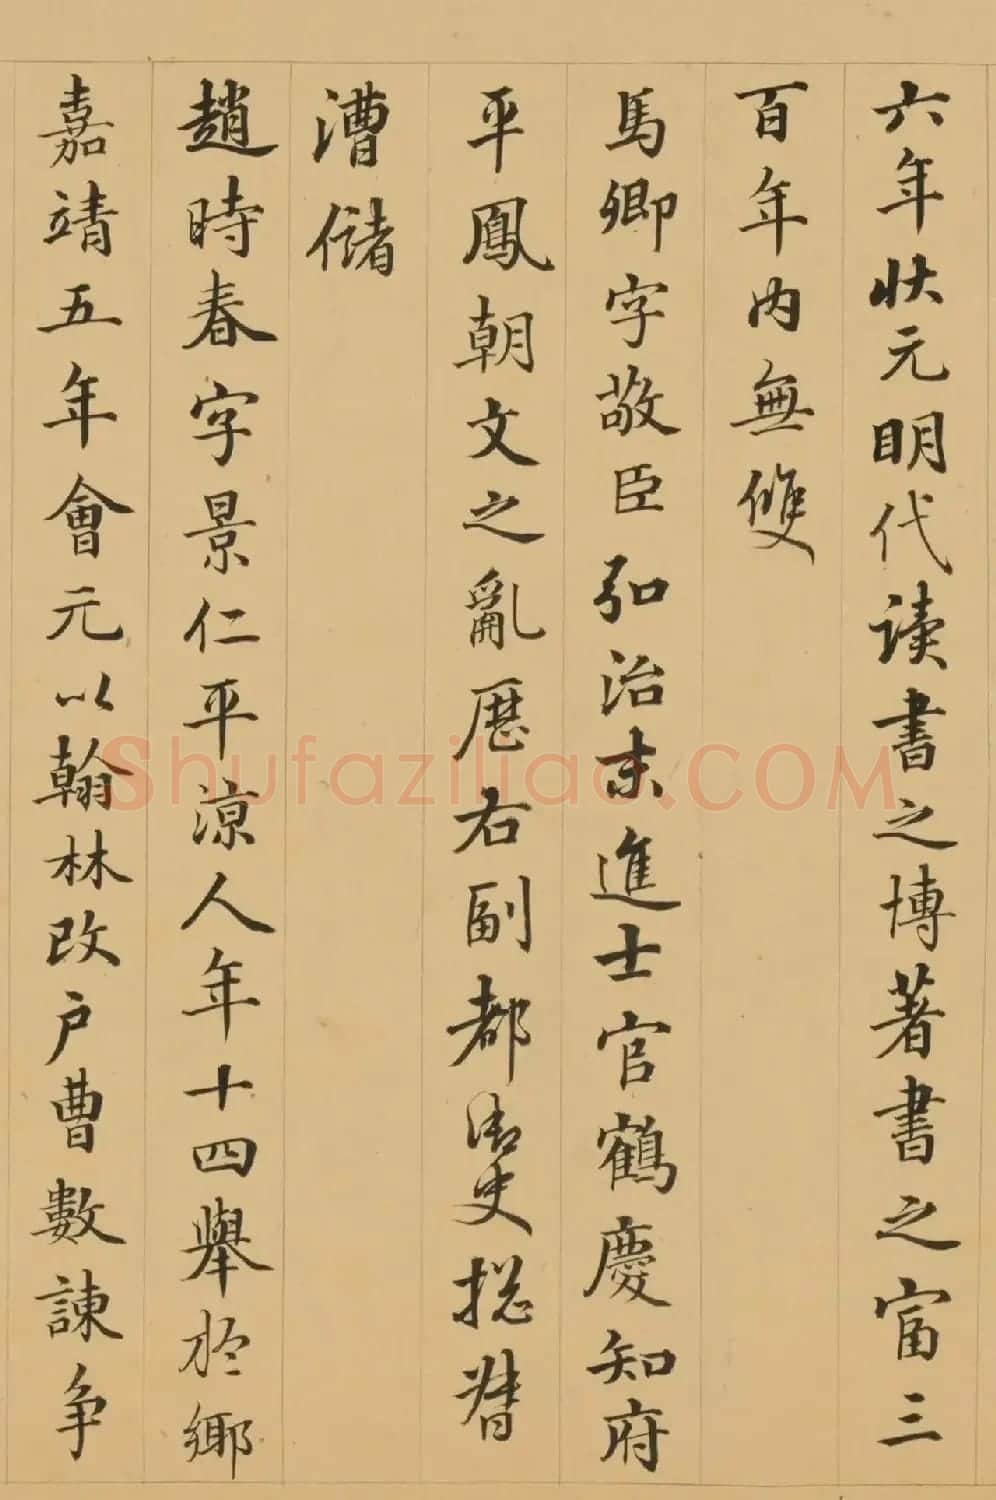 六年状元明代读書之博著書之富三
百年内無雙
馬卿字敬臣弘治末進士官鶴慶知府
平鳳朝文之亂歷右副都御史揔督
漕儲
趙時春字景仁平涼人年十四舉於鄉
嘉靖五年會元以翰林改户曹數諫争
Shufaziliao.COM